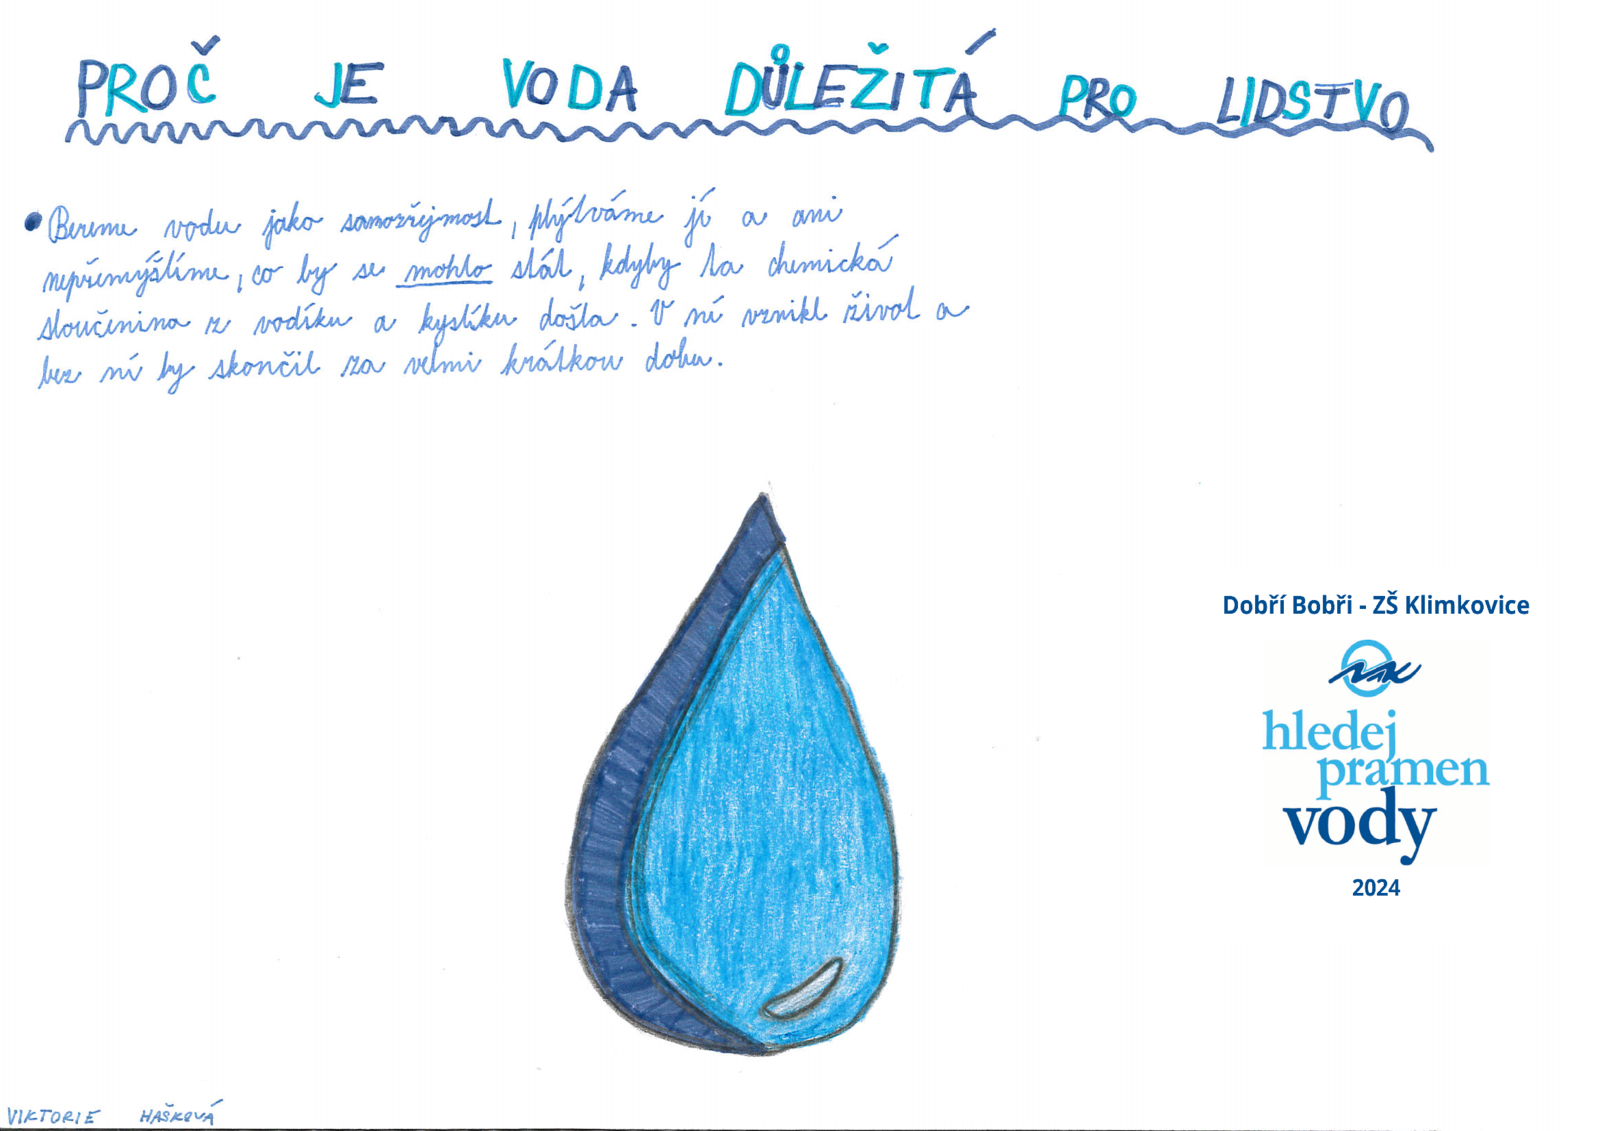 PROČ JE VODA DŮLEŽITÁ PRO LIDSTVO
Bereme vodu jako samozřejmost, plýtváme jí a ani
nepřemýšlíme, co by se mohlo stát, kdyby ta chemická
sloučenina z vodíku a kyslíku došla. V ní vznikl život a
bez ní by skončil za velmi krátkou dobu.
Dobří Bobři - ZŠ Klimkovice
VAK
hledej
pramen
vody
2024
VIKTORIE HAŠKOVÁ